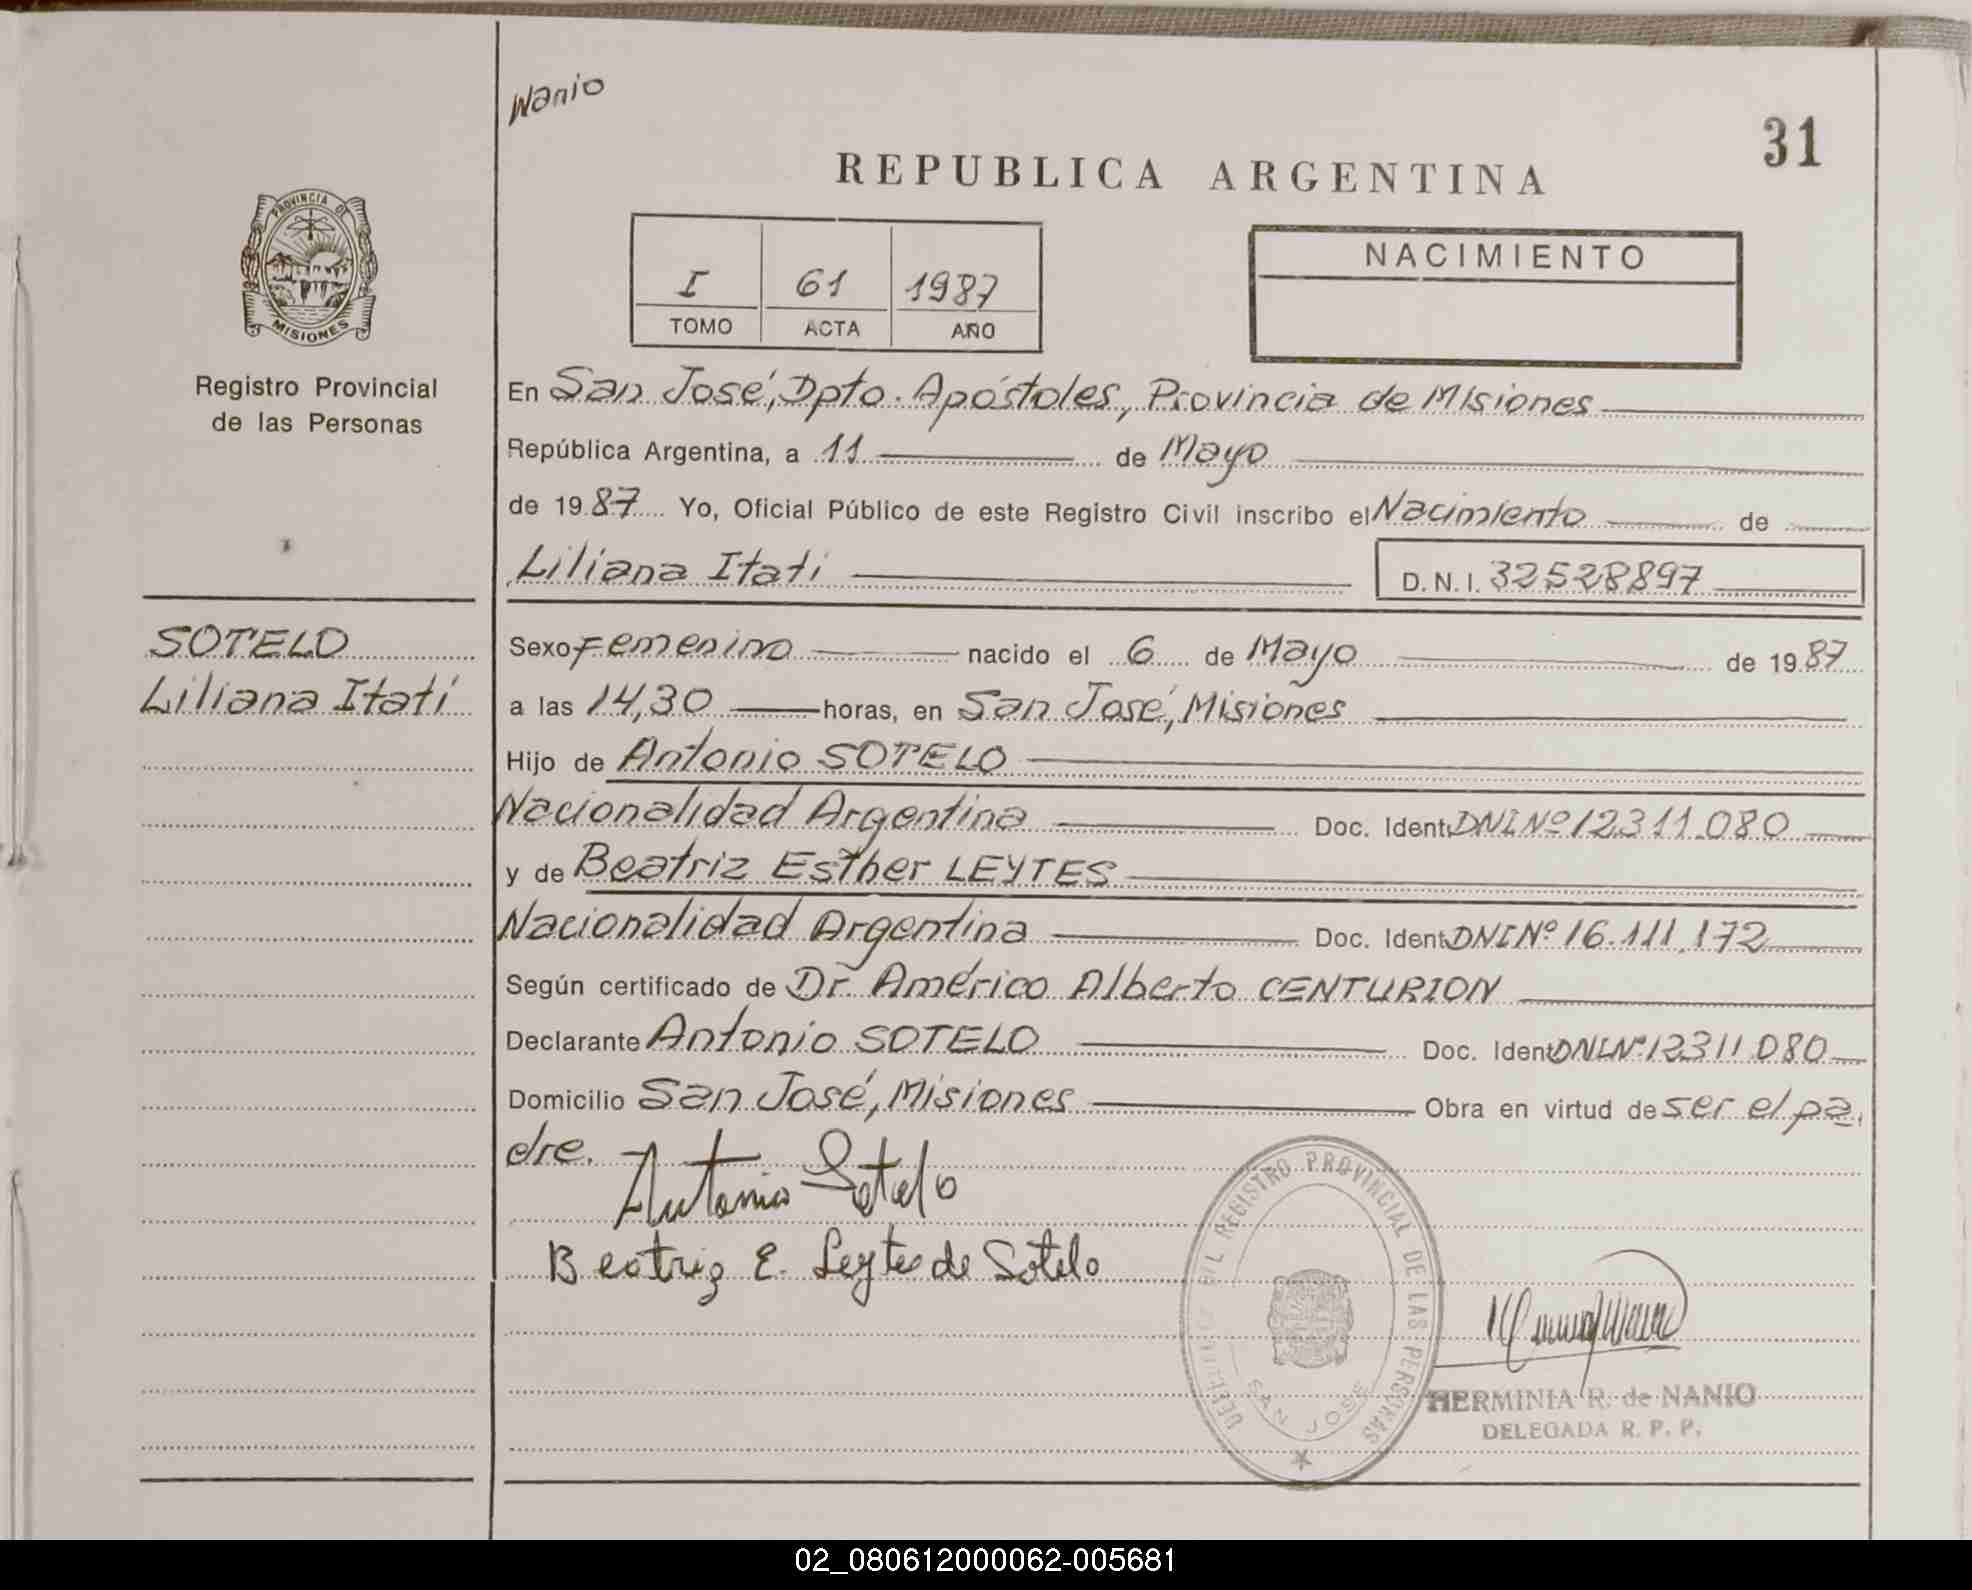 Nanio
31
REPUBLICA ARGENTINA
PROVINCIA DE
MISIONES
Registro Provincial
de las Personas
I 61 1987
TOMO ACTA AÑO
NACIMIENTO
En San José, Dpto. Apóstoles, Provincia de Misiones
República Argentina, a 11 de Mayo
de 1987 Yo, Oficial Público de este Registro Civil inscribo el Nacimiento de
Liliana Itatí D.N.I. 32528897
SOTELO
Liliana Itatí
Sexo Femenino nacido el 6 de Mayo de 1987
a las 14,30 horas, en San José, Misiones
Hijo de Antonio SOTELO
Nacionalidad Argentina Doc. Ident. DNI Nº 12311.080
y de Beatriz Esther LEYTES
Nacionalidad Argentina Doc. Ident. DNI Nº 16.111.172
Según certificado de Dr. Américo Alberto CENTURION
Declarante Antonio SOTELO Doc. Ident. DNI Nº 12311080
Domicilio San José, Misiones Obra en virtud de ser el pa
dre.
Antonio Sotelo
Beatriz E. Leytes de Sotelo
REGISTRO PROVINCIAL DE LAS PERSONAS
SAN JOSE
HERMINIA R. de NANIO
DELEGADA R. P. P.
02_080612000062-005681